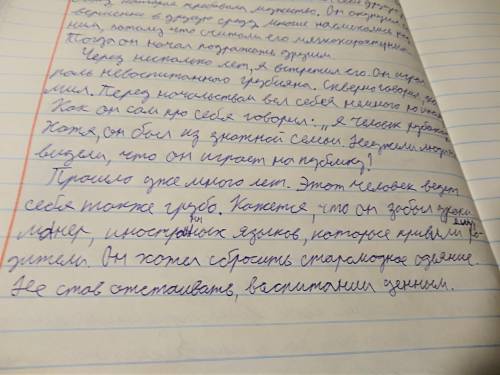 прививали мужество. Он окунулся
в другую среду, многие насмехались
ним, потому что считали его мягкохарактерным.
Тогда он начал подражать другим.
Через несколько лет, я встретил его. Он играл
роль невоспитанного грубияна. Сквернословил,
Перед начальством вел себя немного
Как он сам про себя говорил: „Я человек
Хотя, он был из знатной семьи. Неужели люди не
видели, что он играет на публику?
Прошло уже много лет. Этот человек ведет
себя также грубо. Кажется, что он забыл уроки
манер, иностранных языков, которые привили ему ро-
дители. Он хотел сбросить старомодное одеяние.
Не став отстаивать, воспитании ценным.